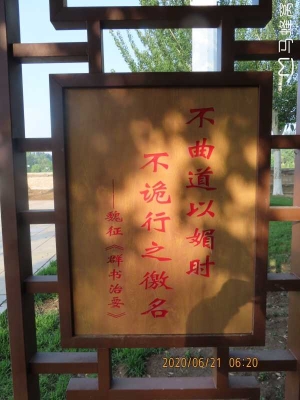 不曲道以媚时
不诡行之徼名
——魏征《群书治要》
马蜂窝
2020/06/21 06:20